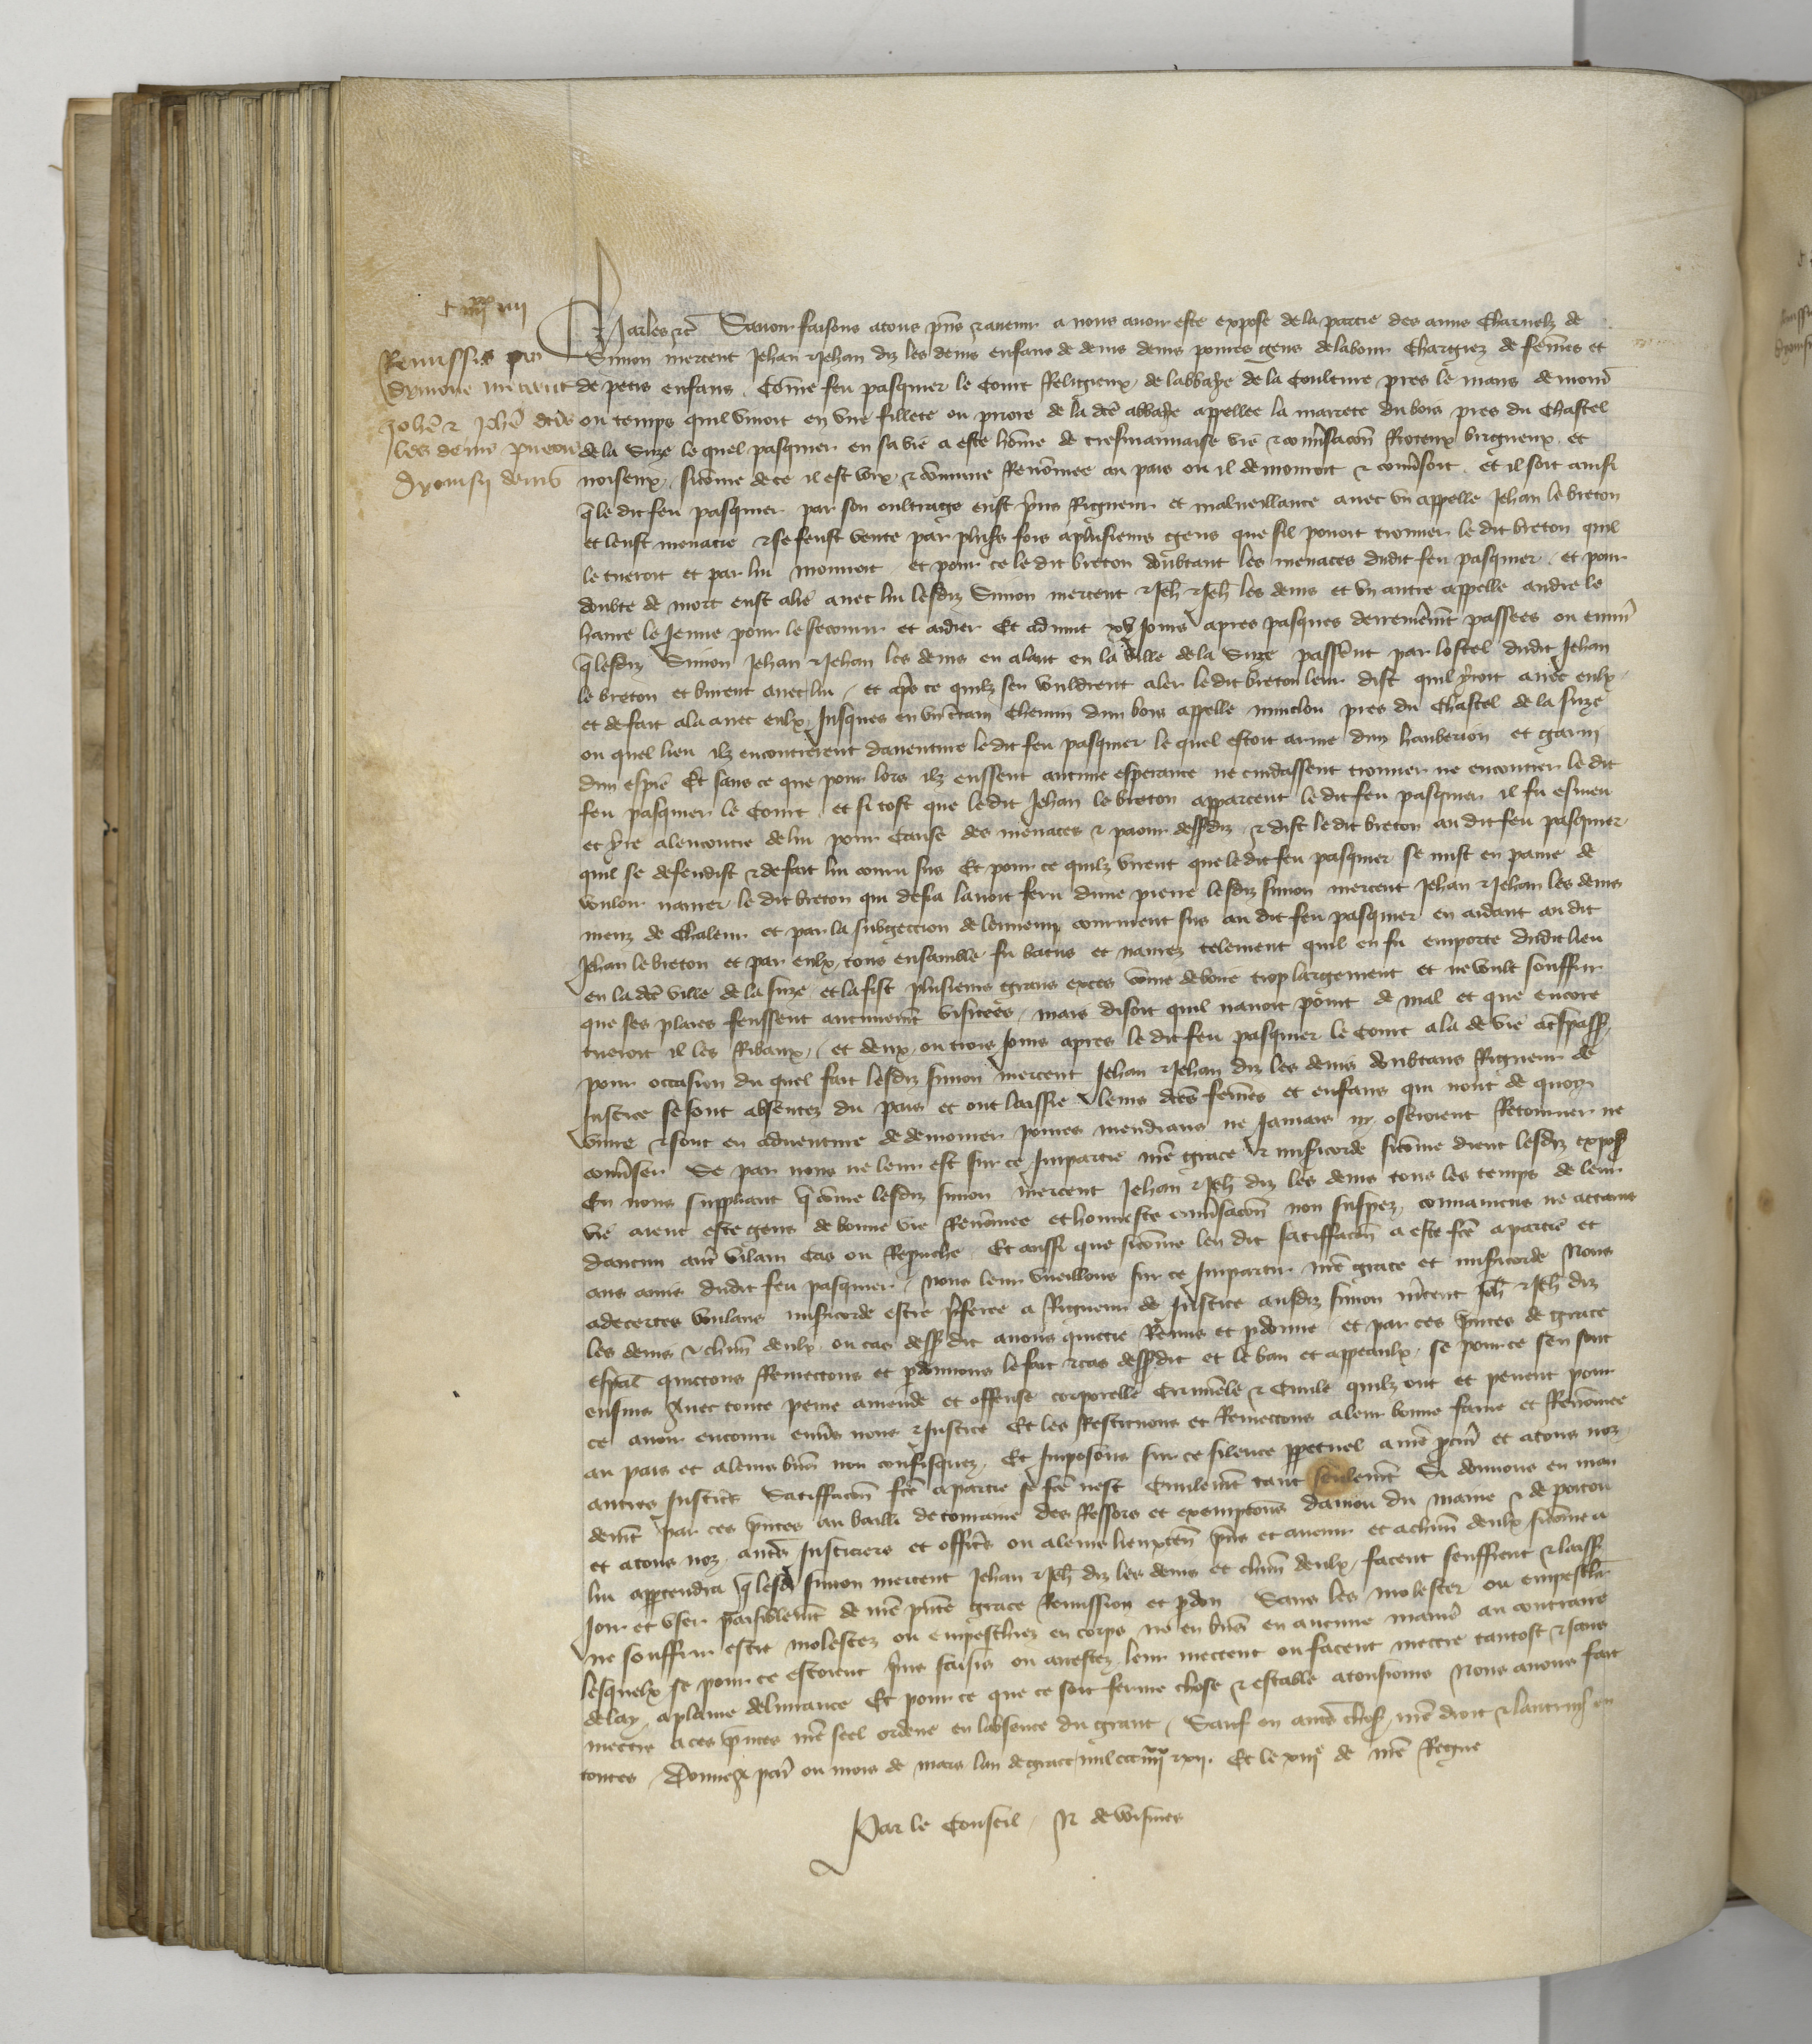 c iiii xx iiii
Remissio pro
Symone mercent
Johē & Jehē dictis
les denis pueris
Dyonisii denis
Charles &c Savoir faisons a tous pn̄s & avenir a nous avoir este expose de la partie des amis charnelz de
Simon mercent Jehan & Jehan diz les denis enfans de denis denis povres gens de labour chargiez de fem̄es et
de petis enfans. Com̄e feu pasquier le conte Religieux de labbaye de la Coulture pres le mans demour
ou temps quil vivoit en une fillete ou priore de la dcē abbaye appellee la marrete du bois pres du chastel
de la Suze le quel pasquier en sa vie a este hom̄e de tresmauvaise vie & conv̄sacōn Rioteux birgueux et
noiseux sicom̄e de ce il est voix & com̄mune Renom̄ee au pais ou il demouroit & conv̄soit. et il soit ainsi
q̄ le dit feu pasquier par son oultrage eust p̄ns Rigueur et malveillance avec un appelle Jehan le breton
et leust menacie & se feust vente par plus̄s fois a plusieurs gens que sil povoit trouver le dit breton quil
le tueroit et par lui mourroit et pour ce le dit breton doubtant les menaces dudit feu pasquier et pour
doubte de mort eust alie avec lui lesdiz Simon mercent & Jeh̄ & Jeh̄ les denis et un autre appelle andre le
hame le Jeune pour le secourir et aidier Et advint xv Jours apres pasques derrenierem̄t passees ou envir̄
q̄ lesdiz Simon Jehan & Jehan les denis en alant en la ville de la Suze passer̄nt par lostel dudit Jehan
le breton et burent avec lui / et ap̄s ce quilz sen vouldrent aler le dit breton leur dist quil yroit avec eulx
et de fait ala avec eulx Jusques en un c̄tain chemin dun bois appelle pres du chastel de la suze
ou quel lieu ilz encontrerent daventure le dit feu pasquier le quel estoit arme dun haubergon et garni
dun espie Et sans ce que pour lors ilz eussent aucune esperance ne cuidassent trouver ne encontrer le dit
feu pasquier le conte et si tost que le dit Jehan le breton apparceut le dit feu pasquier il fu esmeu
et yre alencontre de lui pour cause des menaces & paour dessusdiz & dist le dit breton au dit feu pasquier
quil se defendist & de fait lui couru sus Et pour ce quilz virent que le dit feu pasquier se mist en paine de
vouloir navrer le dit breton qui desia lavoit feru dune pierre lesdiz simon mercent Jehan & Jehan les denis
meuz de chaleur et par la subgection de lennemi coururent sus au dit feu pasquier en aidant au dit
Jehan le breton et par eulx tous ensamble fu batus et navrez telement quil en fu emporte dudit lieu
en la dcē ville de la suze et la fist plusieurs grans exces com̄e de boire trop largement et ne voult souffrir
que ses plaies feussent aucunem̄t visitees / mais disoit quil navoit point de mal et que encore
tueroit il les Ribaux / et deux ou trois Jours apres le dit feu pasquier le conte ala de vie a trespass̄
pour occasion du quel fait lesdiz simon mercent Jehan & Jehan diz les denis doubtans Rigueur de
Justice se sont absentez du pais et ont laissie leurs dcēs fem̄es et enfans qui nont de quoy
vivre & sont en adventure de demourer povres mendians ne Jamais ny oseroient Retourner ne
conv̄ser Se par nous ne leur est sur ce Impartie nr̄e grace & misericorde sicom̄e dient lesdiz expos̄
En nous suppliant q̄ com̄e lesdiz simon mercent Jehan & Jeh̄ diz les denis tous les temps de leur
vie aient este gens de bonne vie Renom̄ee et honneste conv̄sacōn non suspez convaincus ne attains
daucun aut̄ vilain cas ou Reprouche Et aussi que sicom̄e len dit satiffacōn a este fcē a partie et
aus amis dudit feu pasquier / nous leur vueillons sur ce Impartir nr̄e grace et misericorde Nous
adecertes voulans misericorde estre p̄feree a Rigueur de Justice ausdiz simon m̄cent Jeh̄ & Jeh̄ diz
les denis & a chūn deulx ou cas dessusdit avons quictie Remis et p̄donne et par ces p̄ntes de grace
esp̄al quictons Remectons et p̄donnons le fait & cas dessusdit et le ban et appeaulx se pour ce sen sont
ensuis Avec toute peine amende et offense corporelle criminele & civile quilz ont et pevent pour
ce avoir encouru env̄s nous & Justice Et les Restituons et Remectons a leur bonne fame et Renom̄ee
au pais et a leurs biens non confisquez. Et Imposons sur ce silence p̄petuel a nr̄e p̄cur̄ et a tous noz
autres Justic̄ Satiffacōn fcē a partie se fcē nest Civilem̄t tant seulem̄t Si donnons en man
dem̄t par ces p̄ntes au bailli de touraine des Ressors et exempcōns danjou du maine & de poitou
et a tous noz aut̄s Justiciers et offic̄s ou a leurs lieuxten̄ p̄ns et avenir et a chūn deulx sicom̄e a
lui appertendra q̄ lesd̄ simon mercent Jehan & Jeh̄ diz les denis et chūn deulx facent seuffrent & laiss̄
Joir et user paisiblem̄t de nr̄e p̄nte grace Remission et p̄don Sans les molester ou empescher
ne souffrir estre molestez ou empeschiez en corps ne en biens en aucune maniē au contraire
lesquelx se pour ce estoient p̄ns saisis ou arrestez leur mectent ou facent mectre tantost & sans
delay a plaine delivrance Et pour ce que ce soit ferme chose & estable a tousiours Nous avons fait
mectre a ces p̄ntes nr̄e seel ordene en labsence du grant / Sauf en aut̄s chos̄ nr̄e droit & lautruy en
toutes / Donne a par̄ ou mois de mars lan de grace mil ccc iiii xx & xii. Et le xiii e de nr̄e Regne
Par le Conseil / N de voisines